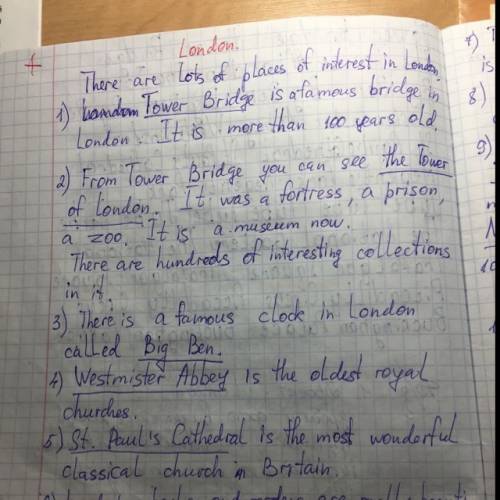 London.
There are lots of places of interest in London.
1) London Tower Bridge is a famous bridge in
London. It is more than 100 years old.
2) From Tower Bridge you can see the Tower
of London. It was a fortress, a prison,
a zoo. It is a museum now.
There are hundreds of interesting collections
in it.
3) There is a famous clock in London
called Big Ben.
4) Westmister Abbey is the oldest royal
churches.
5) St. Paul's Cathedral is the most wonderful
classical church in Britain.
8)
9)